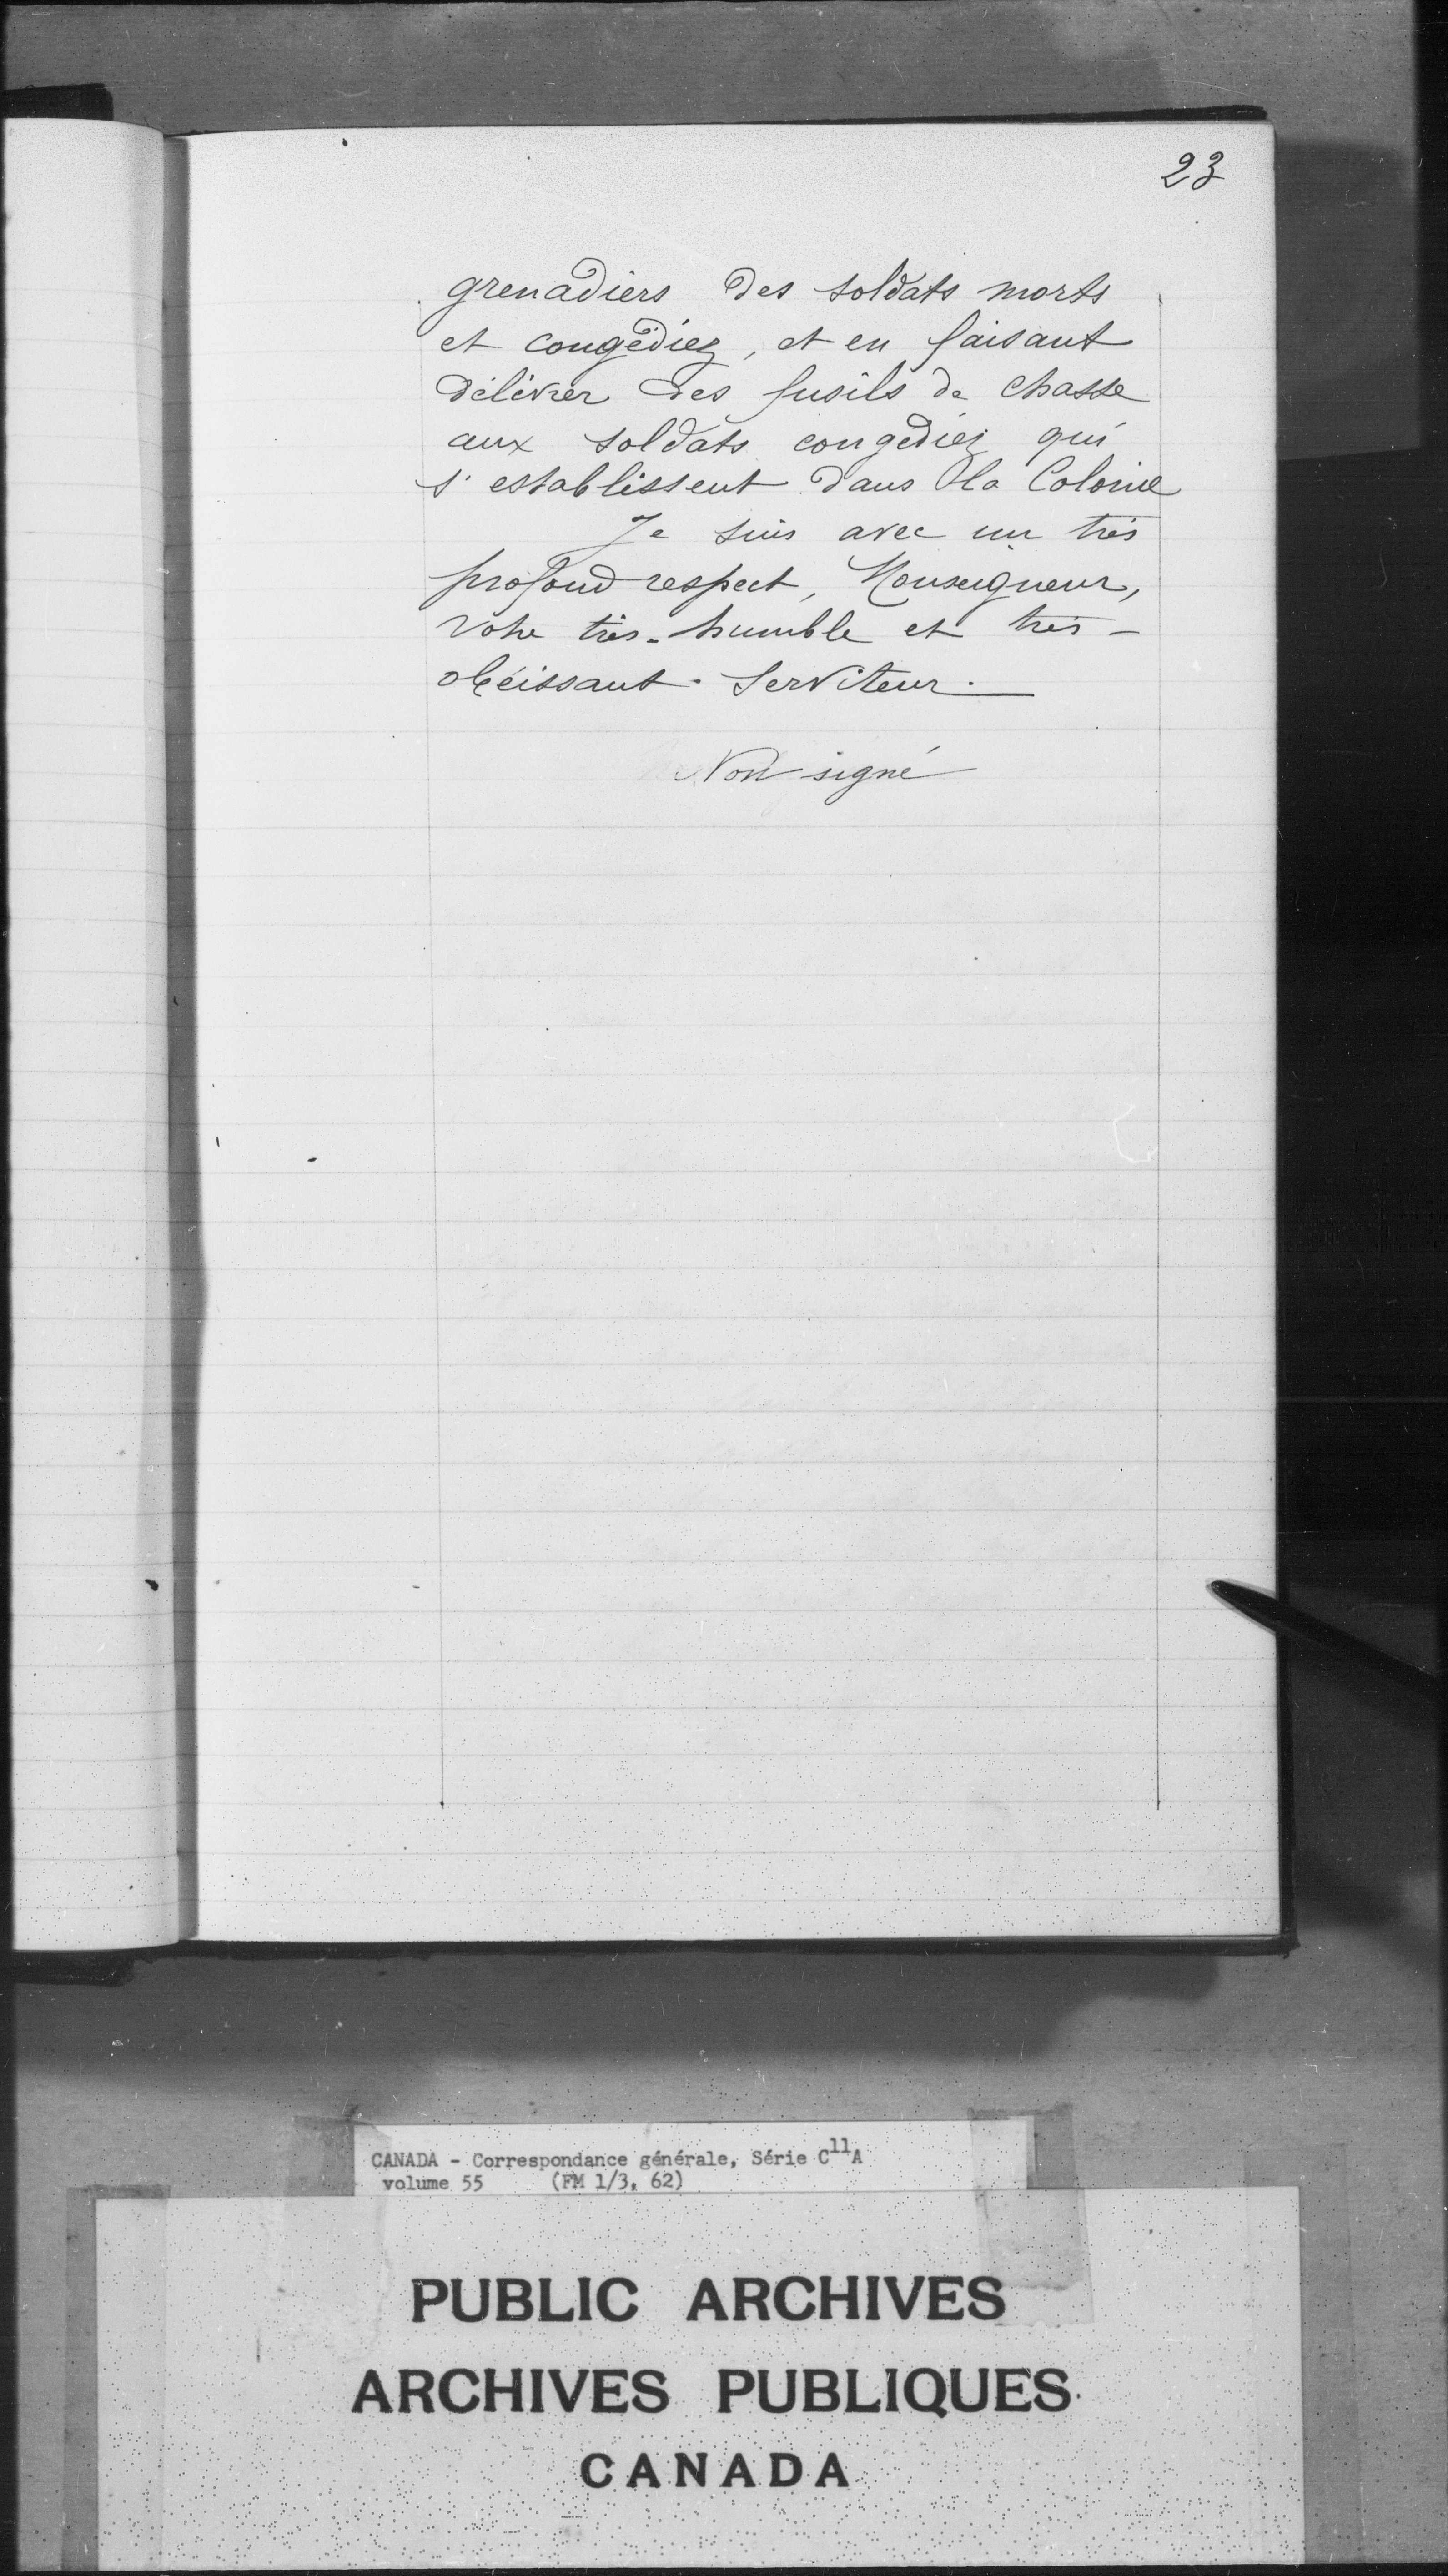 23
grenadiers des soldats morts
et congédiez, et en faisant
délivrer des fusils de chasse
aux soldats congédiez qui
s'establissent dans la Colonie
Je suis avec un très
profond respect, Monseigneur,
Votre très-humble et très-
obéissant Serviteur.
Non signé
CANADA - Correspondance générale, Série C11A
volume 55 (FM 1/3, 62)
PUBLIC ARCHIVES
ARCHIVES PUBLIQUES
CANADA